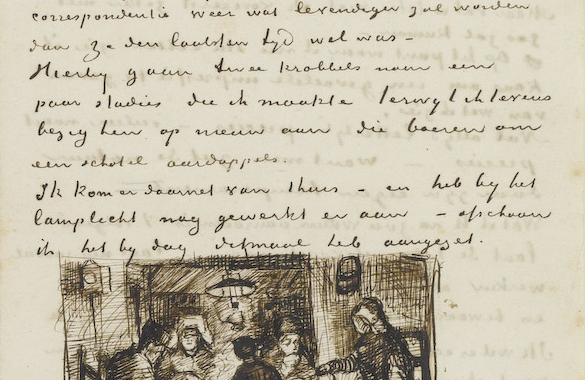 correspondentie weer wat levendiger zal worden
dan ze den laatsten tijd wel was –
Hierbij gaan twee krabbels naar een
paar studies die ik maakte terwijl ik tevens
bezig ben op nieuw aan die boeren om
een schotel aardappels.
Ik kom er daarnet van thuis – en heb bij het
lamplicht nog gewerkt er aan – ofschoon
ik het bij dag ditmaal heb aangezet.